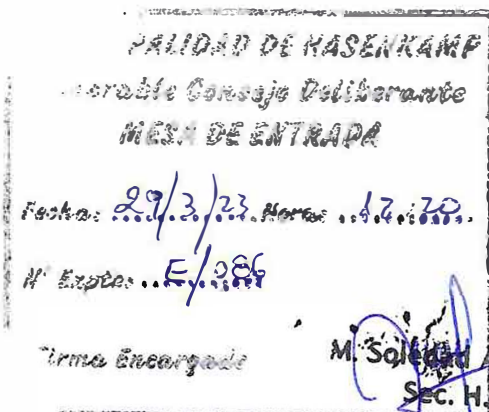 PALIDAD DE HASENKAMP
orable Concejo Deliberante
MESA DE ENTRADA
Fecha: 29/3/23 Hora:
N° Expte: E/086
Firma Encargado
M. Soledad
Sec. H.